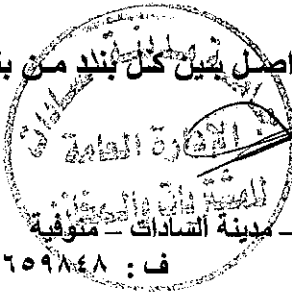 اصل بين كل بند من بن
الإدارة العامة
للمشتريات والمخازن
ـ مدينة السادات – منوفية
ف : ٦٥٩٨٤٨